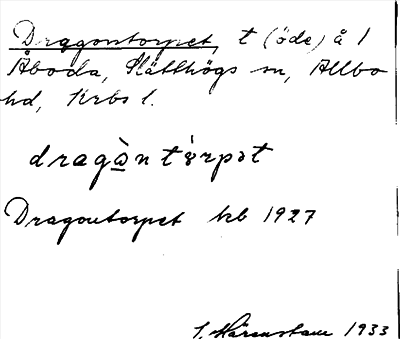 Dragontorpet, t (öde) å 1
Åboda, Slätthögs sn, Allbo
hd, Krbs l.
dragὰn tὸrpət
Dragontorpet krb 1927
J. Härenstam 1933